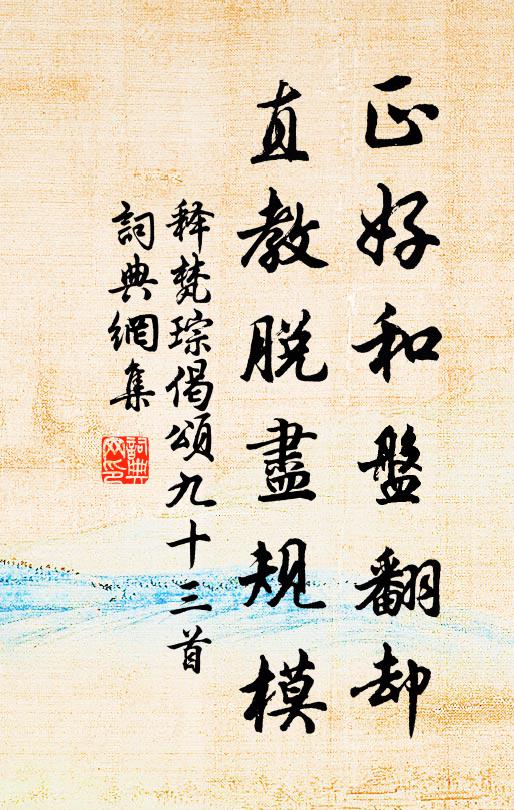 正好和盤翻却
直教脱盡規模
释梵琮偈頌九十三首
詞典網集
詞典网印